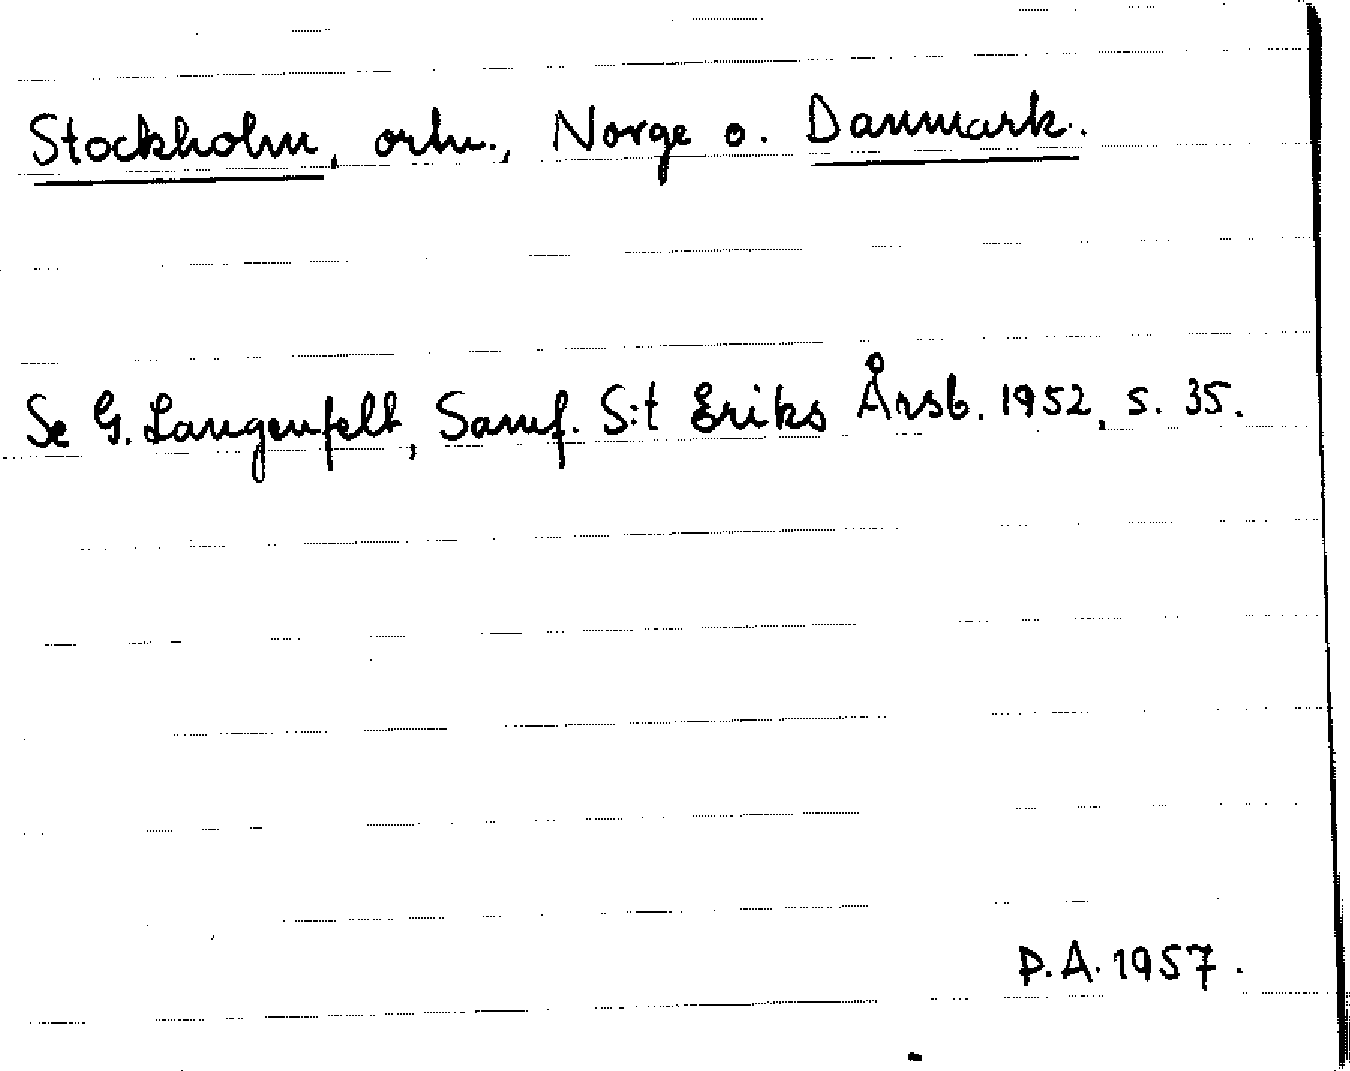 Stockholm, ortn., Norge o. Danmark.
Se G. Langenfelt, Samf. S:t Eriks Årsb. 1952, s. 35.
P.A. 1957.